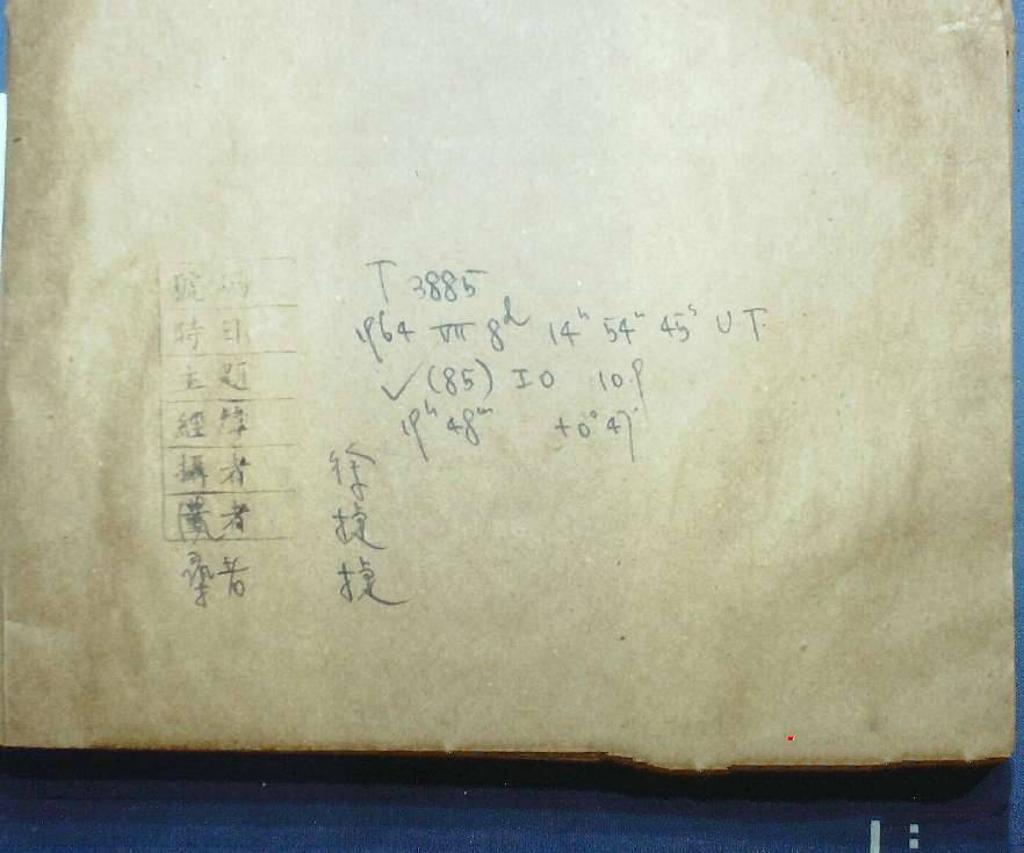 號碼 T 3885
時日 1964 VII 8d 14h 54m 45s UT
主題 ✓ (85) IO 10.9
經緯 19h 48m +0° 47'
攝者 徐
者 捷
尋者 捷